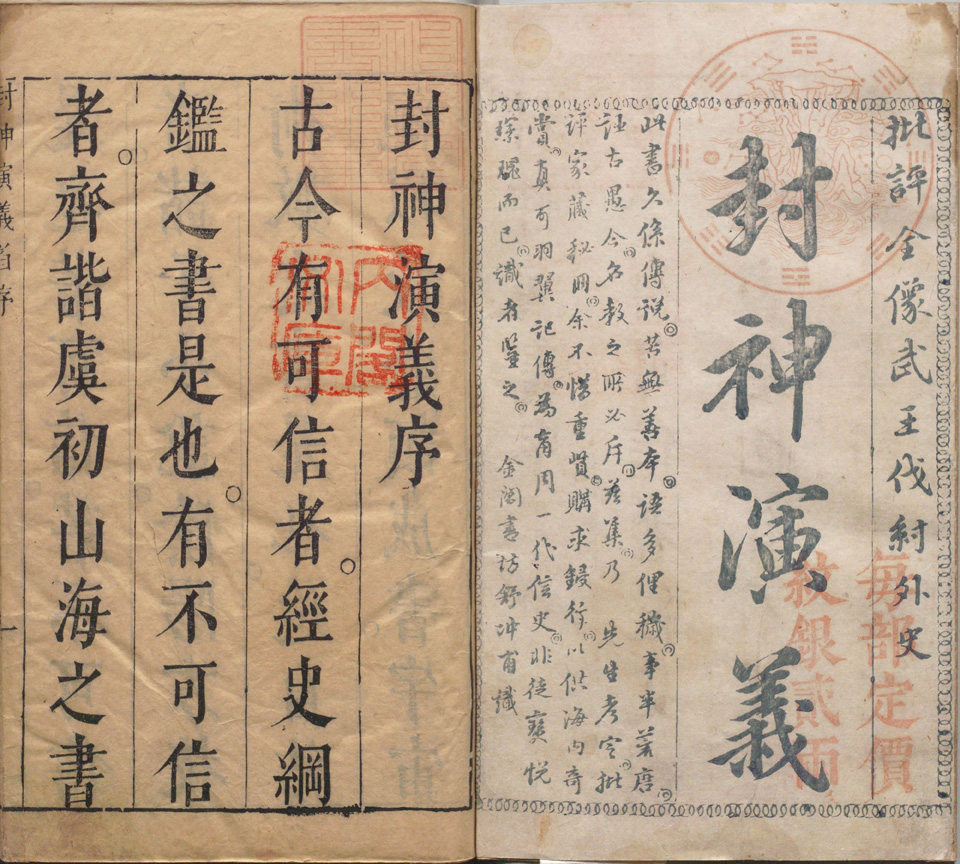 批評全像武王伐紂外史
封神演義
每部定價
紋銀貳兩
此書久係傳說苦無善本語多俚穢事半荒唐
誣古愚今名教之所必斥茲集乃 先生考定批
評家藏秘冊余不惜重貲購求鋟行以供海內奇
賞真可羽翼記傳為商周一代信史非徒寶悅
琛瑰而已識者鑒之 金閶書坊舒冲甫識
封神演義序
古今有可信者經史綱
鑑之書是也有不可信
者齊諧虞初山海之書
封神演義 序
一
內閣
文庫